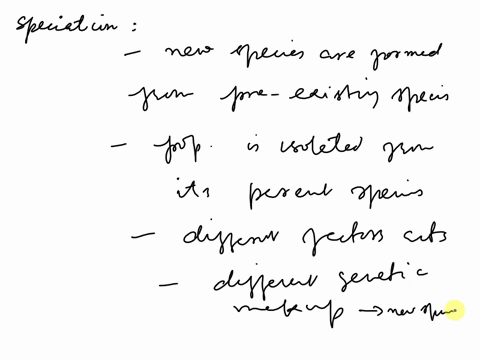 Speciation :
- new species are formed
from pre-existing species
- pop. is isolated from
its parent species
- different factors acts
- different genetic
makeup → new spe